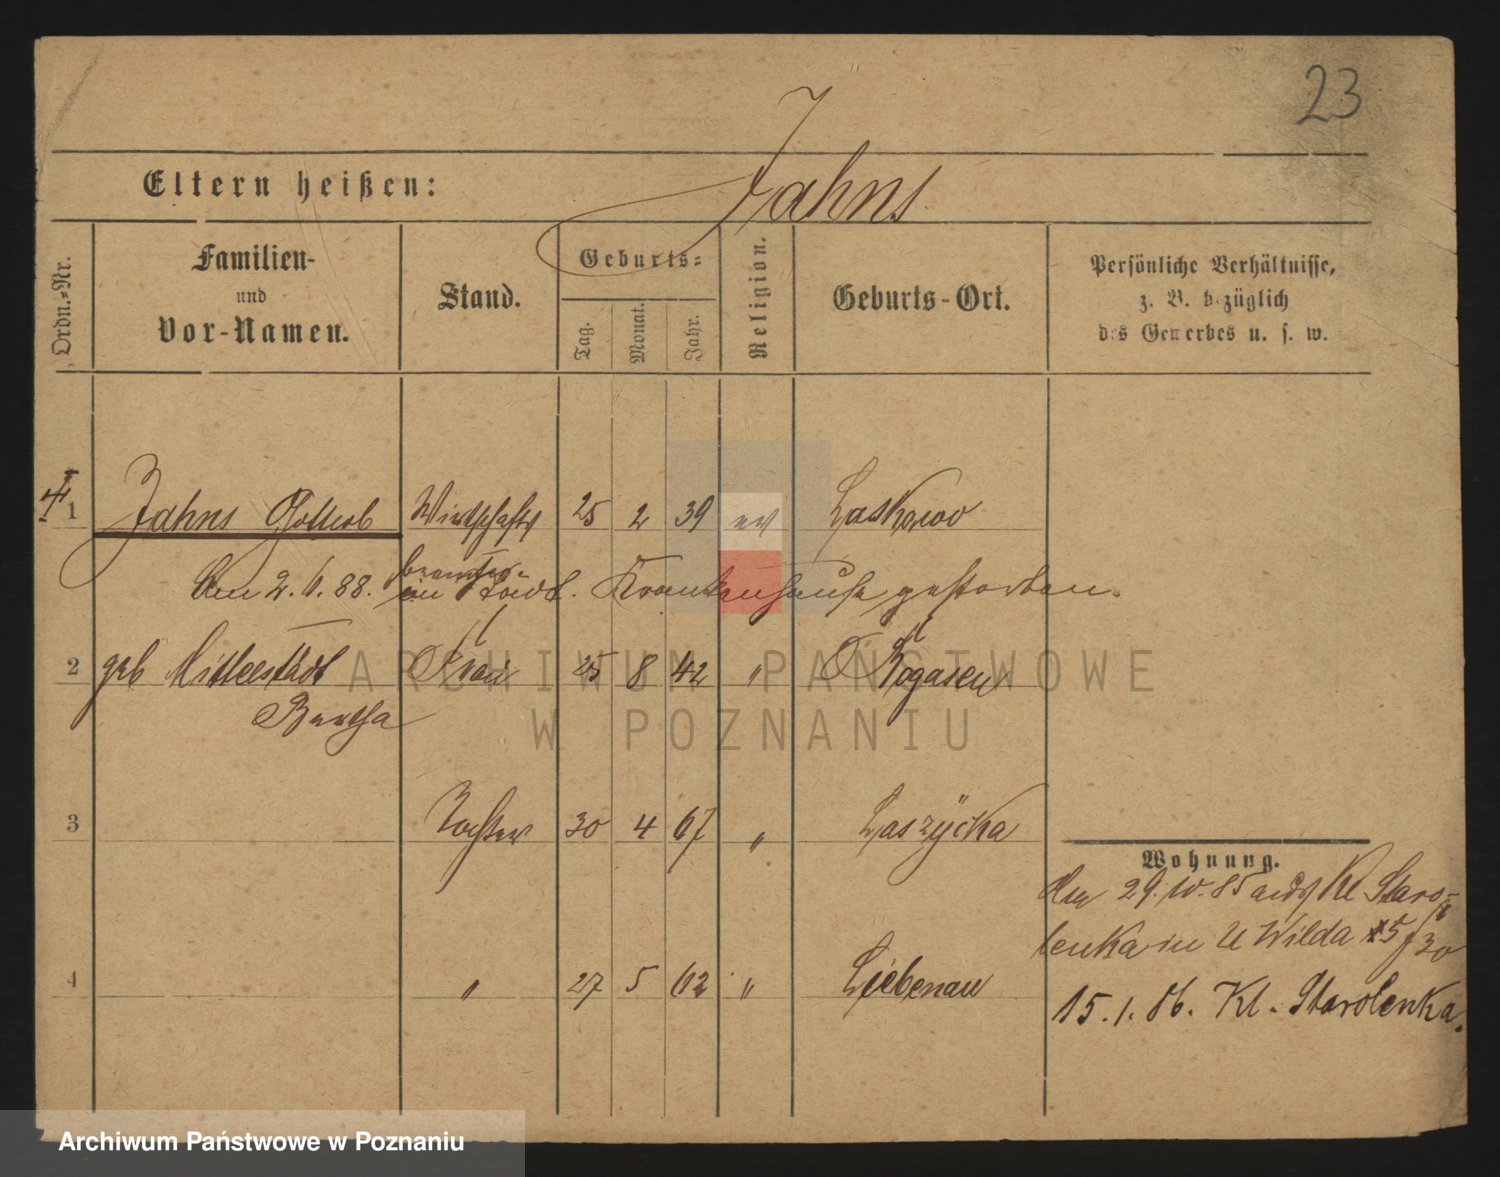 23
Eltern heißen: Jahns
Ordn.-Nr.
Familien-
und
Vor-Namen.
Stand.
Geburts-
Tag.
Monat.
Jahr.
Religion.
Geburts-Ort.
Persönliche Verhältnisse,
z. B. bezüglich
des Gewerbes u. s. w.
1 Jahns Gottlob Wirthschafts 25 2 39 ev Laskowo
beamter
den 2. 6. 88. im Städt. Krankenhause gestorben.
2 geb Mittelstädt Frau 25 8 42 " Rogasen
Bertha
3 Tochter 30 4 67 " Laszÿcka
Wohnung.
den 29. 10. 85 aus Kl Staro-
lenka in U Wilda
4 " 27 5 62 " Liebenau
15. 1. 86. Kl. Starolenka.
ARCHIWUM PAŃSTWOWE
W POZNANIU
Archiwum Państwowe w Poznaniu